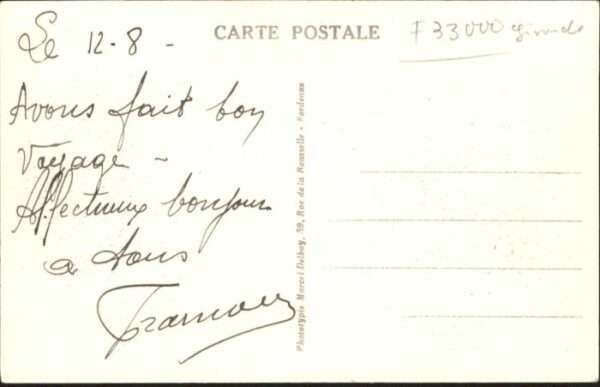 CARTE POSTALE
F 33000 gironde
Le 12-8 -
Avons fait bon
Voyage -
Affectueux bonjour
a tous
Phototypie Marcel Delboy, 39, Rue de la Rousselle - Bordeaux